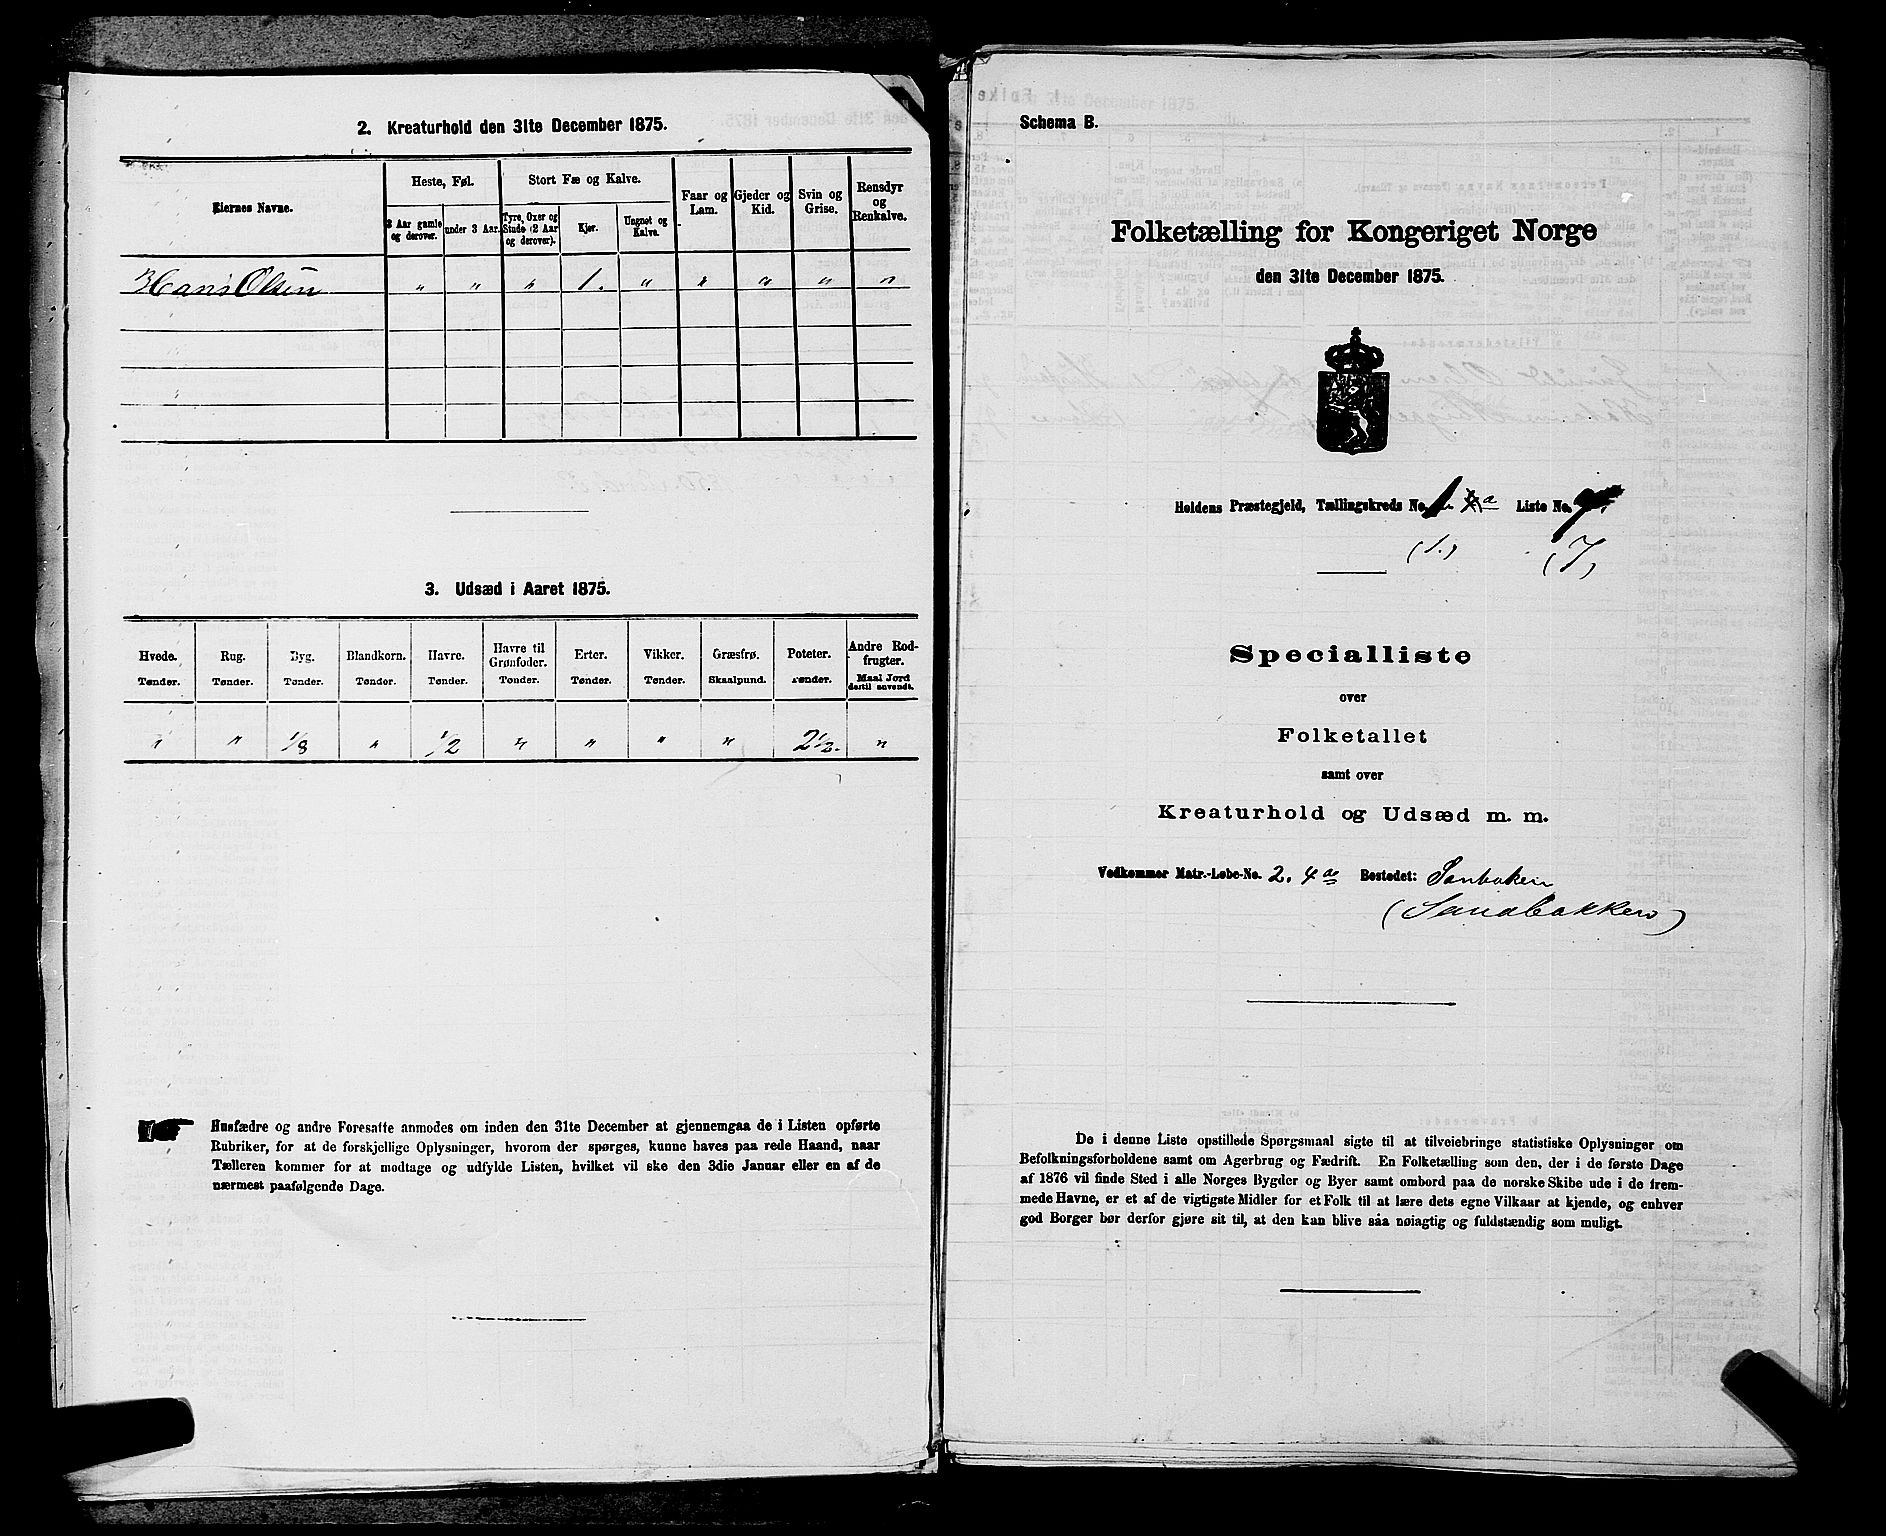 2. Kreaturhold den 31te December 1875.
Eiernes Navne.
Heste, Føl.
Stort Fæ og Kalve.
3 Aar gamle og derover.
under 3 Aar.
Tyre, Oxer og Stude (2 Aar og derover).
Kjør.
Ungnøt og Kalve.
Faar og Lam.
Gjeder og Kid.
Svin og Grise.
Rensdyr og Renkalve.
Hans Olsen " " " 1. " " " " "
3. Udsæd i Aaret 1875.
Hvede. Rug. Byg. Blandkorn. Havre. Havre til Grønfoder. Erter. Vikker. Græsfrø. Poteter. Andre Rodfrugter.
Tønder. Tønder. Tønder. Tønder. Tønder. Tønder. Tønder. Tønder. Skaalpund. Tønder. Maal Jord dertil anvendt.
" " 1/8 " 1/2 " " " " 2 1/2. "
Husfædre og andre Foresatte anmodes om inden den 31te December at gjennemgaa de i Listen opførte
Rubriker, for at de forskjellige Oplysninger, hvorom der spørges, kunne haves paa rede Haand, naar
Tælleren kommer for at modtage og udfylde Listen, hvilket vil ske den 3die Januar eller en af de
nærmest paafølgende Dage.
Schema B.
Folketælling for Kongeriget Norge
den 31te December 1875.
Holdens Præstegjeld, Tællingskreds No. 1. a Liste No. 7.
(1.) (7)
Specialliste
over
Folketallet
samt over
Kreaturhold og Udsæd m. m.
Vedkommer Matr.-Løbe-No. 2. 4 a Bostedet: Sanbaken
(Sandbakken)
De i denne Liste opstillede Spørgsmaal sigte til at tilveiebringe statistiske Oplysninger om
Befolkningsforholdene samt om Agerbrug og Fædrift. En Folketælling som den, der i de første Dage
af 1876 vil finde Sted i alle Norges Bygder og Byer samt ombord paa de norske Skibe ude i de frem-
mede Havne, er et af de vigtigste Midler for et Folk til at lære dets egne Vilkaar at kjende, og enhver
god Borger bør derfor gjøre sit til, at den kan blive saa nøiagtig og fuldstændig som muligt.